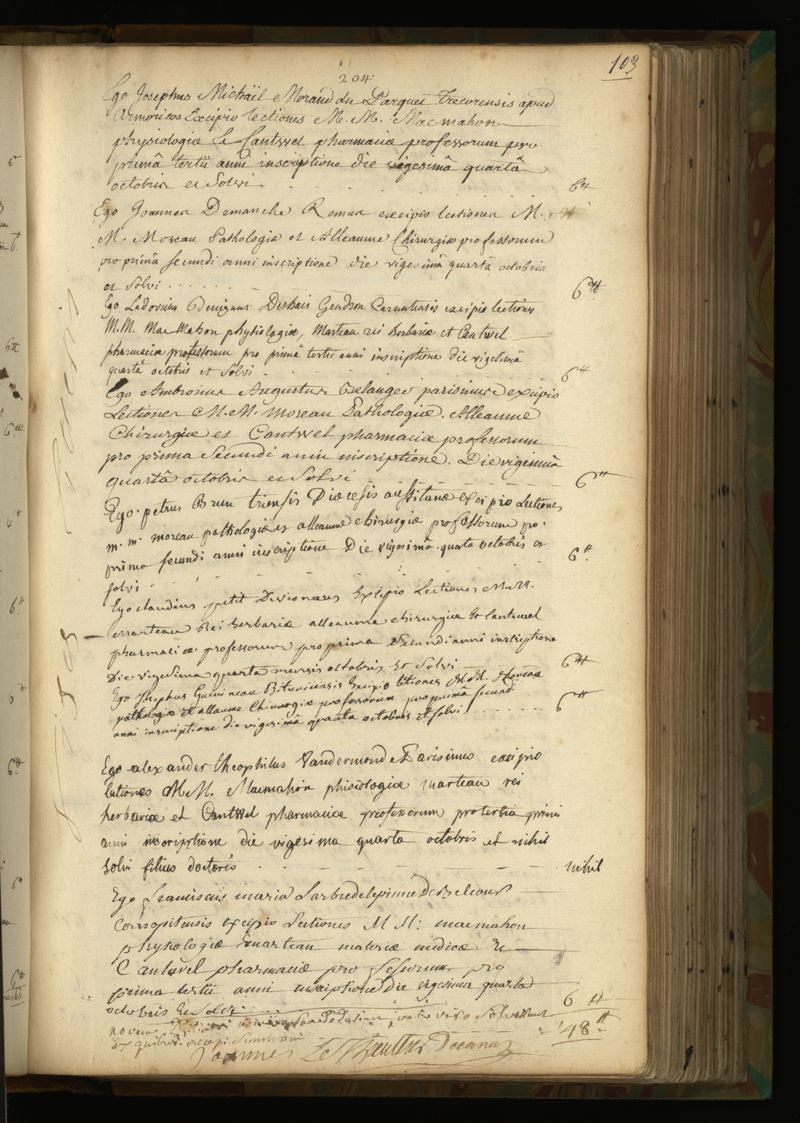 103
204
Ego Josephus Michaël Morand du Parquet Trecorensis apud
Armoricos Excipio lectiones M. M. Macmahon
physiologiæ & Cantwel pharmaciæ professorum pro
primâ tertii anni inscriptione die vigesimâ quartâ
octobris et Solvi. 6 ₶
Ego Joannes Demanche Remus excipio lectiones M.
M. Moreau Pathologiæ et Alleaume Chirurgiæ professorum
pro primâ secundi anni inscriptione die vigesimâ quartâ octobris
et solvi 6 ₶
Ego Ludovicus Desbois Gendron Carnutensis excipio lectiones
M.M. MacMahon physiologiæ, Marteau rei herbariæ et Cantwel
pharmaciæ professorum pro primâ tertii anni inscriptione die vigesimâ
quartâ octobris et solvi 6 ₶
Ego Ambrosius Augustus Belanger parisinus excipio
Lectiones M.M. Moreau Pathologiæ, Alleaume
Chirurgiæ et Cantwel pharmaciæ professorum
pro prima Secundi anni inscriptione. Die vigesimâ
quartâ octobris et Solvi 6 ₶
Ego petrus Brun Diæcesis Excipio Lectiones
m. m. moreau pathologiæ et alleaume chirurgiæ professorum pro
primâ secundi anni inscriptione Die vigesimâ quarta octobris et
solvi 6 ₶
Ego claudius petit Divionæus Excipio Lectiones M.M.
Marteau Rei herbariæ alleaume chirurgiæ Et Cantwel
pharmaciæ professorum pro prima secundi anni inscriptione
Die vigesima quarta mensis octobris Et Solvi 6 ₶
Ego Josephus Guerineau Bituricensis Excipio lectiones M.M. Moreau
pathologiæ et alleaume Chirurgiæ professorum pro primâ secundi
anni inscriptione die vigesimâ quarta octobris et solvi 6 ₶
Ego alexander theophilus Vandermonde Parisinus excipio
lectiones M.M. Macmahon phisiologiæ Marteau rei
herbariæ et Cantwel pharmaciæ professorum pro tertia primi
anni inscriptione die vigesima quarta octobris et nihil
solvi filius doctoris nihil
Ego franciscus maria de Belcour
Corisopitensis excipio Lectiones M M: macmahon
physologiæ Marteau materiæ medicæ &
Cantwel pharmaciæ professorum pro
prima tertii anni inscriptione Die vigesima quarta
octobris Et Solvi 6 ₶
48 ₶
ex quibus accepi summam
Joannes Le Thieullier Decanus